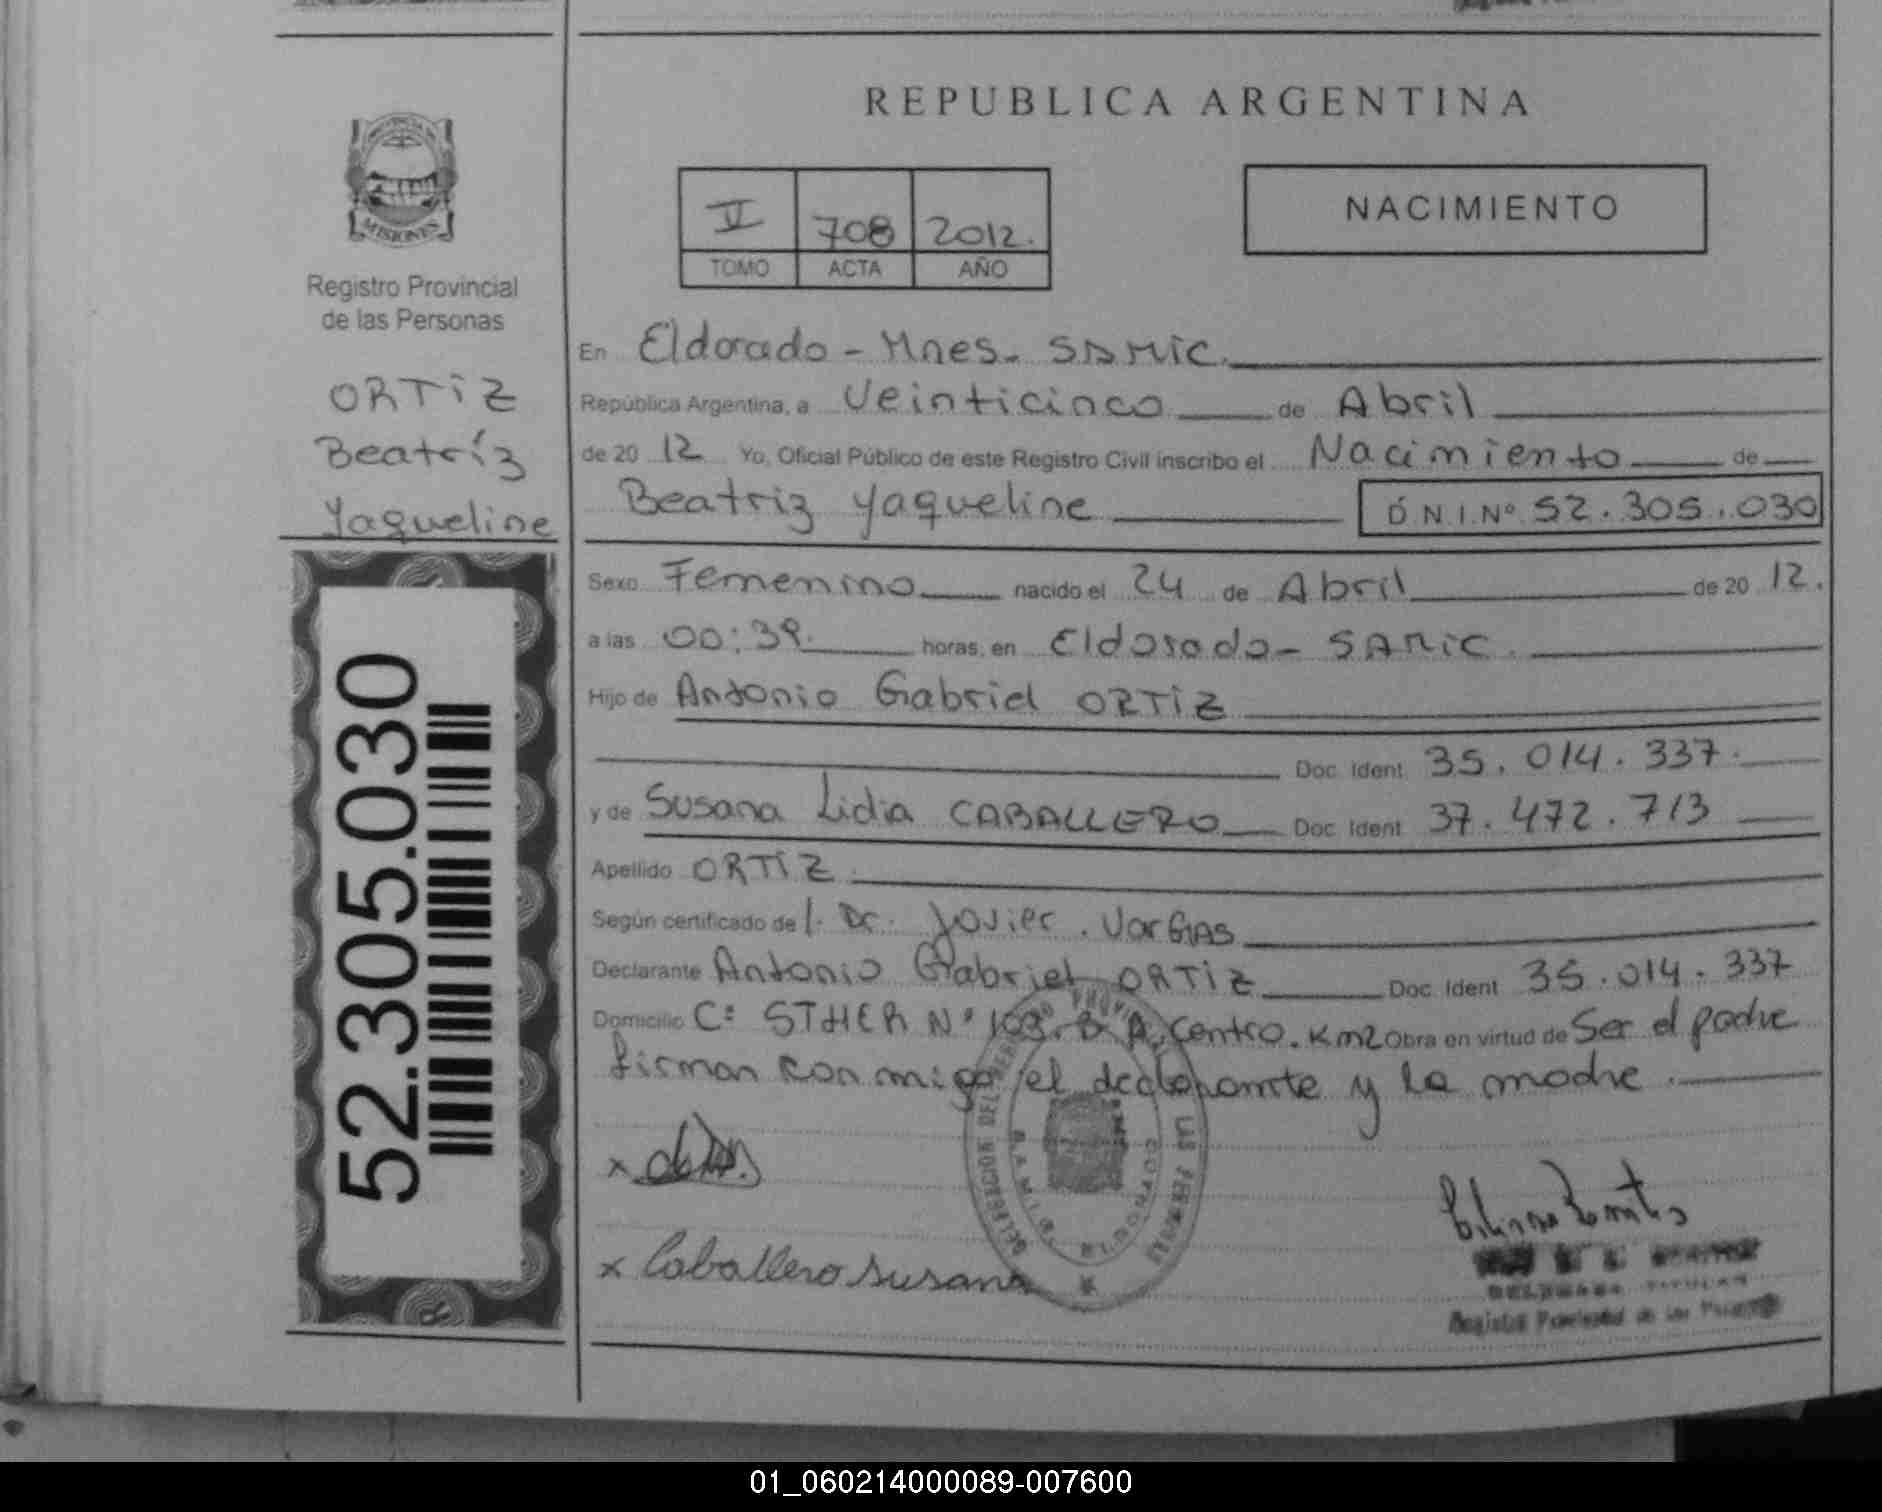 REPUBLICA ARGENTINA
PROVINCIA DE
MISIONES
Registro Provincial
de las Personas
ORTIZ
Beatríz
Yaqueline
52.305.030
II 708 2012.
TOMO ACTA AÑO
NACIMIENTO
En Eldorado - Mnes. SAMIC.
República Argentina, a Veinticinco de Abril
de 20 12 Yo, Oficial Público de este Registro Civil inscribo el Nacimiento de
Beatriz Yaqueline D.N.I.Nº 52.305.030
Sexo Femenino nacido el 24 de Abril de 20 12.
a las 00:39. horas, en Eldorado - SAMIC.
Hijo de Antonio Gabriel ORTIZ
Doc. Ident. 35.014.337.
y de Susana Lidia CABALLERO Doc. Ident. 37.472.713
Apellido ORTIZ.
Según certificado de l. Dr. Javier. VarGAS
Declarante Antonio Gabriel ORTIZ Doc. Ident. 35.014.337
Domicilio Cº STHER Nº 103. Bº Centro. Km2 Obra en virtud de Ser el padre
firman con migo el declarante y la madre.
x
x Caballero Susana
DELEGACION DEL
LAS PERSONAS
TITULAR
Registro Provincial de las Personas
01_060214000089-007600